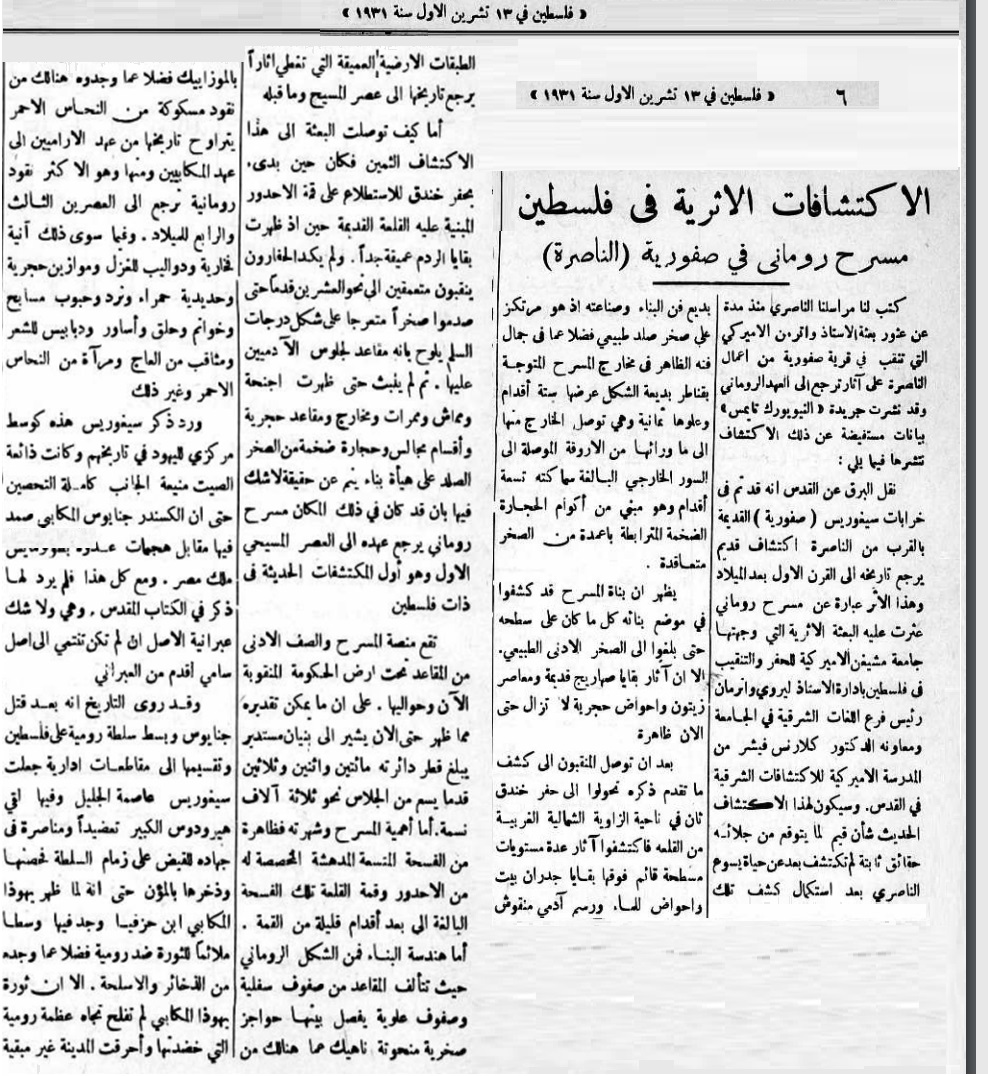 « فلسطين في ١٣ تشرين الاول سنة ١٩٣١ »
٦ « فلسطين في ١٣ تشرين الاول سنة ١٩٣١ »
الاكتشافات الاثرية في فلسطين
مسرح روماني في صفورية (الناصرة)
كتب لنا مراسلنا الناصري منذ مدة
عن عثور بعثة الاستاذ واترمن الاميركي
التي تنقب في قرية صفورية من اعمال
الناصرة على آثار ترجع الى العهد الروماني
وقد نشرت جريدة « النيويورك تايمس»
بيانات مستفيضة عن ذلك الاكتشاف
ننشرها فيما يلي :
نقل البرق عن القدس انه قد تم في
خرابات سيغوريس ( صفورية ) القديمة
بالقرب من الناصرة اكتشاف قديم
يرجع تاريخه الى القرن الاول بعد الميلاد
وهذا الأثر عبارة عن مسرح روماني
عثرت عليه البعثة الاثرية التي وجهتها
جامعة مشيغن الاميركية للحفر والتنقيب
في فلسطين بادارة الاستاذ ليروي واترمان
رئيس فرع اللغات الشرقية في الجامعة
ومعاونه الدكتور كلارنس فيشر من
المدرسة الاميركية للاكتشافات الشرقية
في القدس. وسيكون لهذا الاكتشاف
الحديث شأن قيم لما يتوقع من جلائه
حقائق ثابتة لم تكتشف بعد عن حياة يسوع
الناصري بعد استكمال كشف تلك
الطبقات الارضية العميقة التي تغطي اثاراً
يرجع تاريخها الى عصر المسيح وما قبله
أما كيف توصلت البعثة الى هذا
الاكتشاف الثمين فكان حين بدىء
بحفر خندق للاستطلاع على قمة الاحدور
المبنية عليه القلعة القديمة حين اذ ظهرت
بقايا الردم عميقة جداً . ولم يكد الحفارون
ينقبون متعمقين الى نحو العشرين قدماً حتى
صدموا صخراً متعرجا على شكل درجات
السلم يلوح بانه مقاعد لجلوس الآدميين
عليها . ثم لم يلبث حتى ظهرت اجنحة
ومماش وممرات ومخارج ومقاعد حجرية
وأقسام مجالس وحجارة ضخمة من الصخر
الصلد على هيأة بناء ينم عن حقيقة لا شك
فيها بان قد كان في ذلك المكان مسرح
روماني يرجع عهده الى العصر المسيحي
الاول وهو أول المكتشفات الحديثة في
ذات فلسطين
تقع منصة المسرح والصف الادنى
من المقاعد تحت ارض الحكومة المنقوبة
الآن وحواليها . على ان ما يمكن تقديره
مما ظهر حتى الان يشير الى بنيان مستدير
يبلغ قطر دائرته مائتين واثنين وثلاثين
قدما يسع من الجلاس نحو ثلاثة آلاف
نسمة. أما أهمية المسرح وشهرته فظاهرة
من الفسحة المتسعة المدهشة المخصصة له
من الاحدور وقمة القلعة تلك الفسحة
البالغة الى بعد أقدام قليلة من القمة .
أما هندسة البناء فمن الشكل الروماني
حيث تتألف المقاعد من صفوف سفلية
وصفوف علوية يفصل بينها حواجز
صخرية منحوتة ناهيك عما هنالك من
بديع فن البناء وصناعته اذ هو مرتكز
على صخر صلد طبيعي فضلا عما في جمال
فنه الظاهر في مخارج المسرح المتوجة
بقناطر بديعة الشكل عرضها ستة أقدام
وعلوها ثمانية وهي توصل الخارج منها
الى ما ورائها من الاروقة الموصلة الى
السور الخارجي البالغة سماكته تسعة
أقدام وهو مبني من أكوام الحجارة
الضخمة المترابطة باعمدة من الصخر
متعاقدة .
يظهر ان بناة المسرح قد كشفوا
في موضع بنائه كل ما كان على سطحه
حتى بلغوا الى الصخر الادنى الطبيعي.
الا ان آثار بقايا صهاريج قديمة ومعاصر
زيتون واحواض حجرية لا تزال حتى
الان ظاهرة
بعد ان توصل المنقبون الى كشف
ما تقدم ذكره تحولوا الى حفر خندق
ثان في ناحية الزاوية الشمالية الغربية
من القلعة فاكتشفوا آثار عدة مستويات
مسطحة قائم فوقها بقايا جدران بيت
واحواض للماء ورسم آدمي منقوش
بالموزاييك فضلا عما وجدوه هنالك من
نقود مسكوكة من النحاس الاحمر
يتراوح تاريخها من عهد الاراميين الى
عهد المكابيين ومنها وهو الاكثر نقود
رومانية ترجع الى العصرين الثالث
والرابع للميلاد . وفيما سوى ذلك آنية
فخارية ودواليب للغزل وموازين حجرية
وحديدية حمراء ونرد وحبوب مسابح
وخواتم وحلق وأساور ودبابيس للشعر
ومثاقب من العاج ومرآة من النحاس
الاحمر وغير ذلك
ورد ذكر سيغوريس هذه كوسط
مركزي لليهود في تاريخهم وكانت ذائعة
الصيت منيعة الجانب كاملة التحصين
حتى ان الكسندر جنايوس المكابي صمد
فيها مقابل هجمات
ملك مصر . ومع كل هذا فلم يرد لها
ذكر في الكتاب المقدس . وهي ولا شك
عبرانية الاصل ان لم تكن تنتمي الى اصل
سامي أقدم من العبراني
وقد روى التاريخ انه بعد قتل
جنايوس وبسط سلطة رومية على فلسطين
وتقسيمها الى مقاطعات ادارية جعلت
سيغوريس عاصمة الجليل وفيها لقي
هيرودوس الكبير تعضيداً ومناصرة في
جهاده للقبض على زمام السلطة فحصنها
وذخرها بالمؤن حتى انه لما ظهر يهوذا
المكابي ابن حزقيا وجد فيها وسطا
ملائماً للثورة ضد رومية فضلا عما وجده
من الذخائر والاسلحة . الا ان ثورة
يهوذا المكابي لم تفلح تجاه عظمة رومية
التي خضدتها وأحرقت المدينة غير مبقية